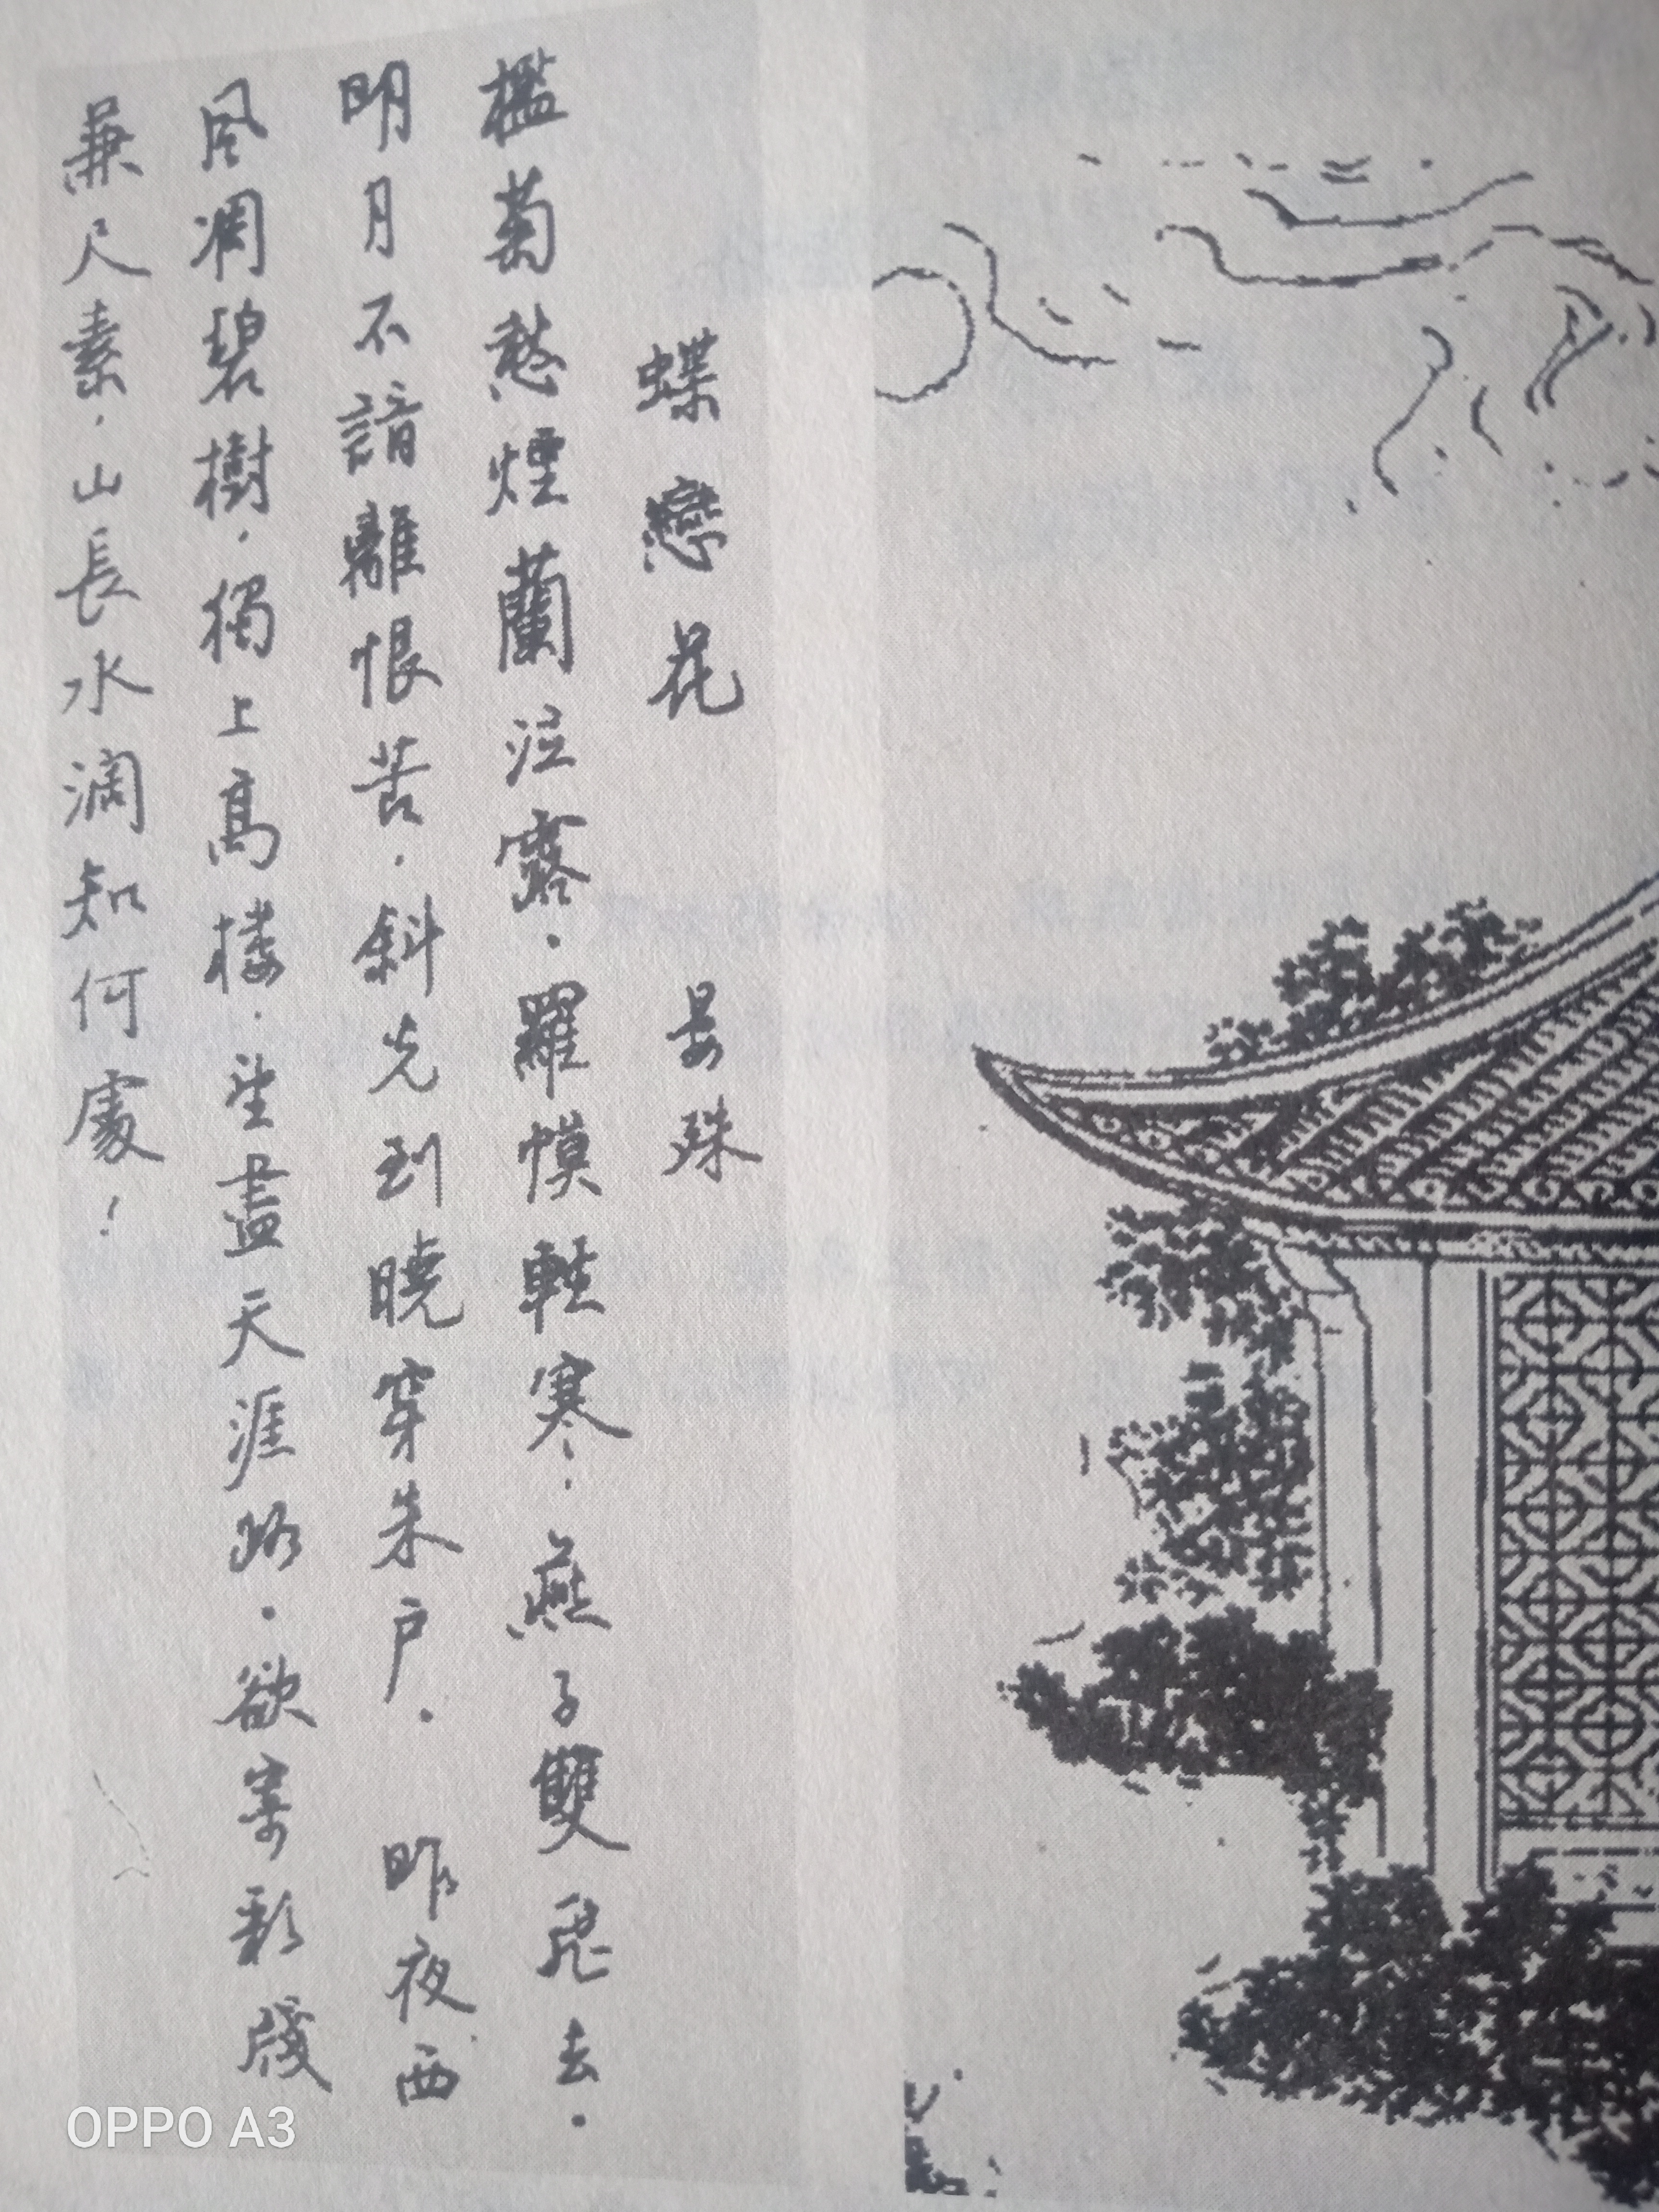 蝶戀花 晏殊
檻菊愁煙蘭泣露．羅幙輕寒．燕子雙飛去．
明月不諳離恨苦．斜光到曉穿朱戶． 昨夜西
風凋碧樹．獨上高樓．望盡天涯路．欲寄彩牋
兼尺素．山長水濶知何處！
OPPO A3